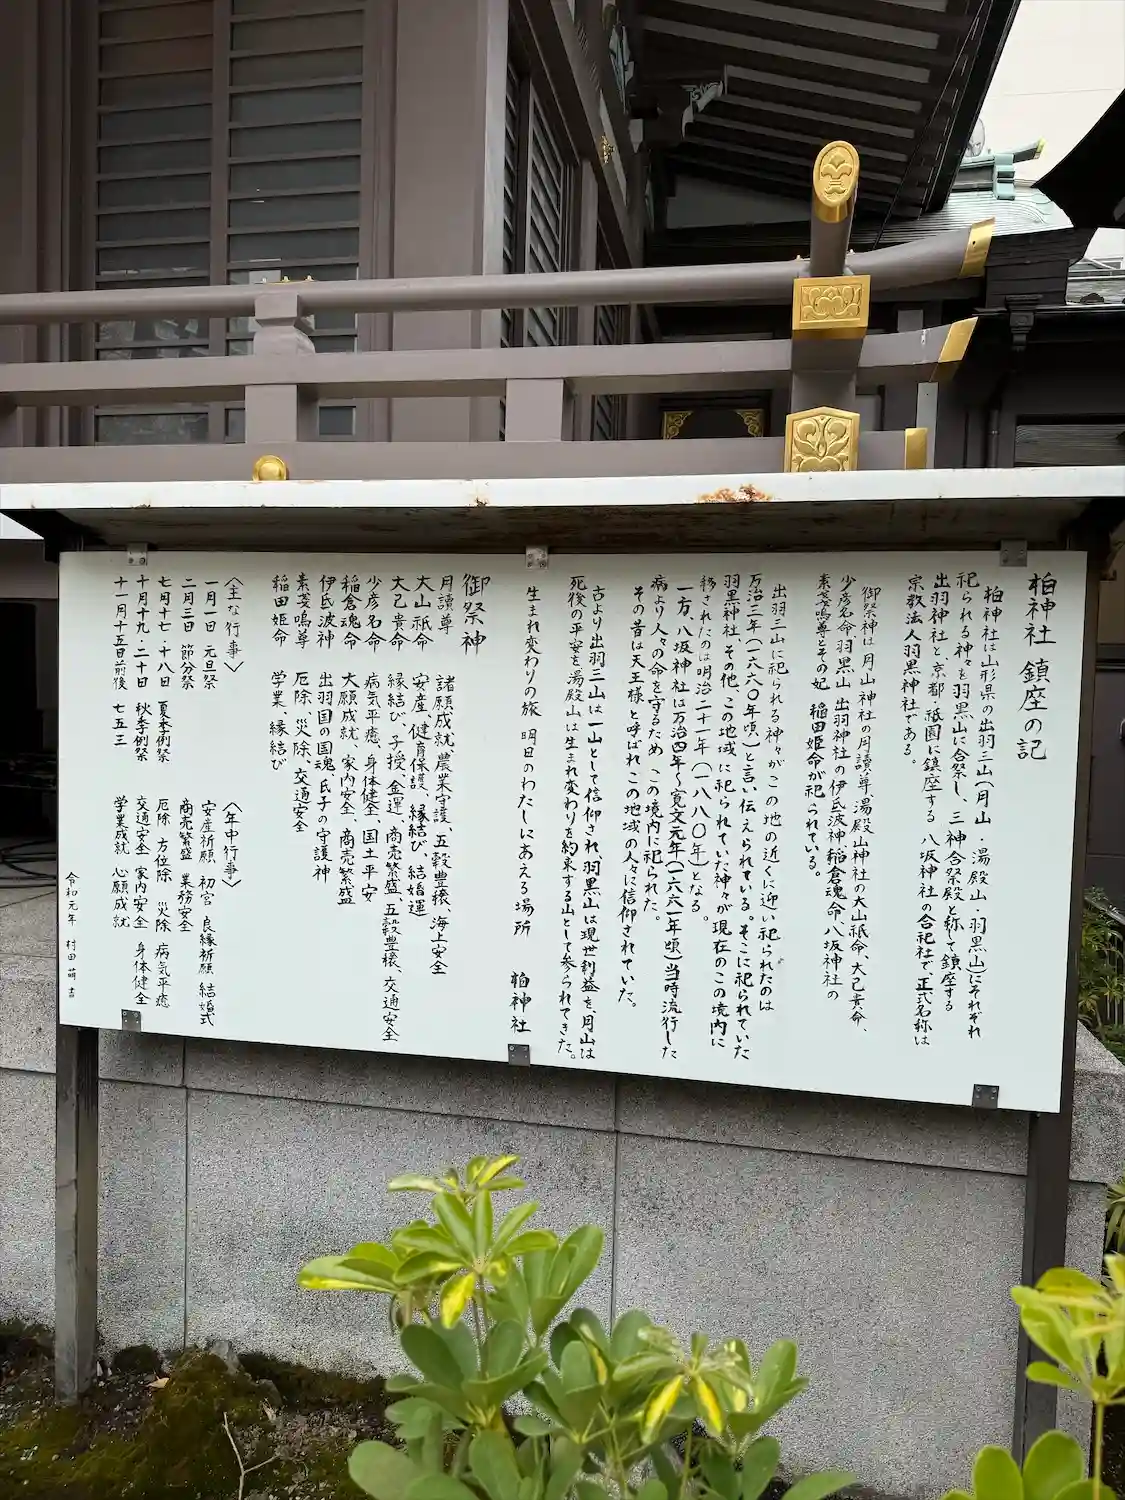 柏神社 鎮座の記
柏神社は山形県の出羽三山(月山・湯殿山・羽黒山)にそれぞれ
祀られる神々を羽黒山に合祭し、三神合祭殿と称して鎮座する
出羽神社と京都・祇園に鎮座する 八坂神社の合祀社で正式名称は
宗教法人羽黒神社である。
御祭神は月山神社の月讀尊、湯殿山神社の大山祇命、大己貴命、
少彦名命、羽黒山 出羽神社の伊氐波神 稲倉魂命、八坂神社の
素戔嗚尊とその妃 稲田姫命が祀られている。
出羽三山に祀られる神々がこの地の近くに迎い祀られたのは
万治三年(一六六〇年頃)と言い伝えられている。そこに祀られていた
羽黒神社、その他、この地域に祀られていた神々が現在のこの境内に
移されたのは明治二十一年(一八八〇年)となる。
一方、八坂神社は万治四年～寛文元年(一六六一年頃)当時流行した
病より人々の命を守るため この境内に祀られた。
その昔は天王様と呼ばれ この地域の人々に信仰されていた。
古より出羽三山は一山として信仰され、羽黒山は現世利益を、月山は
死後の平安を湯殿山は生まれ変わりを約束する山として参られてきた。
生まれ変わりの旅 明日のわたしにあえる場所
柏神社
御祭神
月讀尊 諸願成就、農業守護、五穀豊穣、海上安全
大山祇命 安産、健育保護、縁結び、結婚運
大己貴命 縁結び、子授、金運、商売繁盛、五穀豊穣、交通安全
少彦名命 病気平癒、身体健全、国土平安
稲倉魂命 大願成就、家内安全、商売繁盛
伊氐波神 出羽国の国魂 氏子の守護神
素戔嗚尊 厄除、災除、交通安全
稲田姫命 学業、縁結び
〈主な行事〉
一月一日 元旦祭
二月三日 節分祭
七月十七・十八日 夏季例祭
十月十九・二十日 秋季例祭
十一月十五日前後 七五三
〈年中行事〉
安産祈願 初宮 良縁祈願 結婚式
商売繁盛 業務安全
厄除 方位除 災除 病気平癒
交通安全 家内安全 身体健全
学業成就 心願成就
令和元年 村田